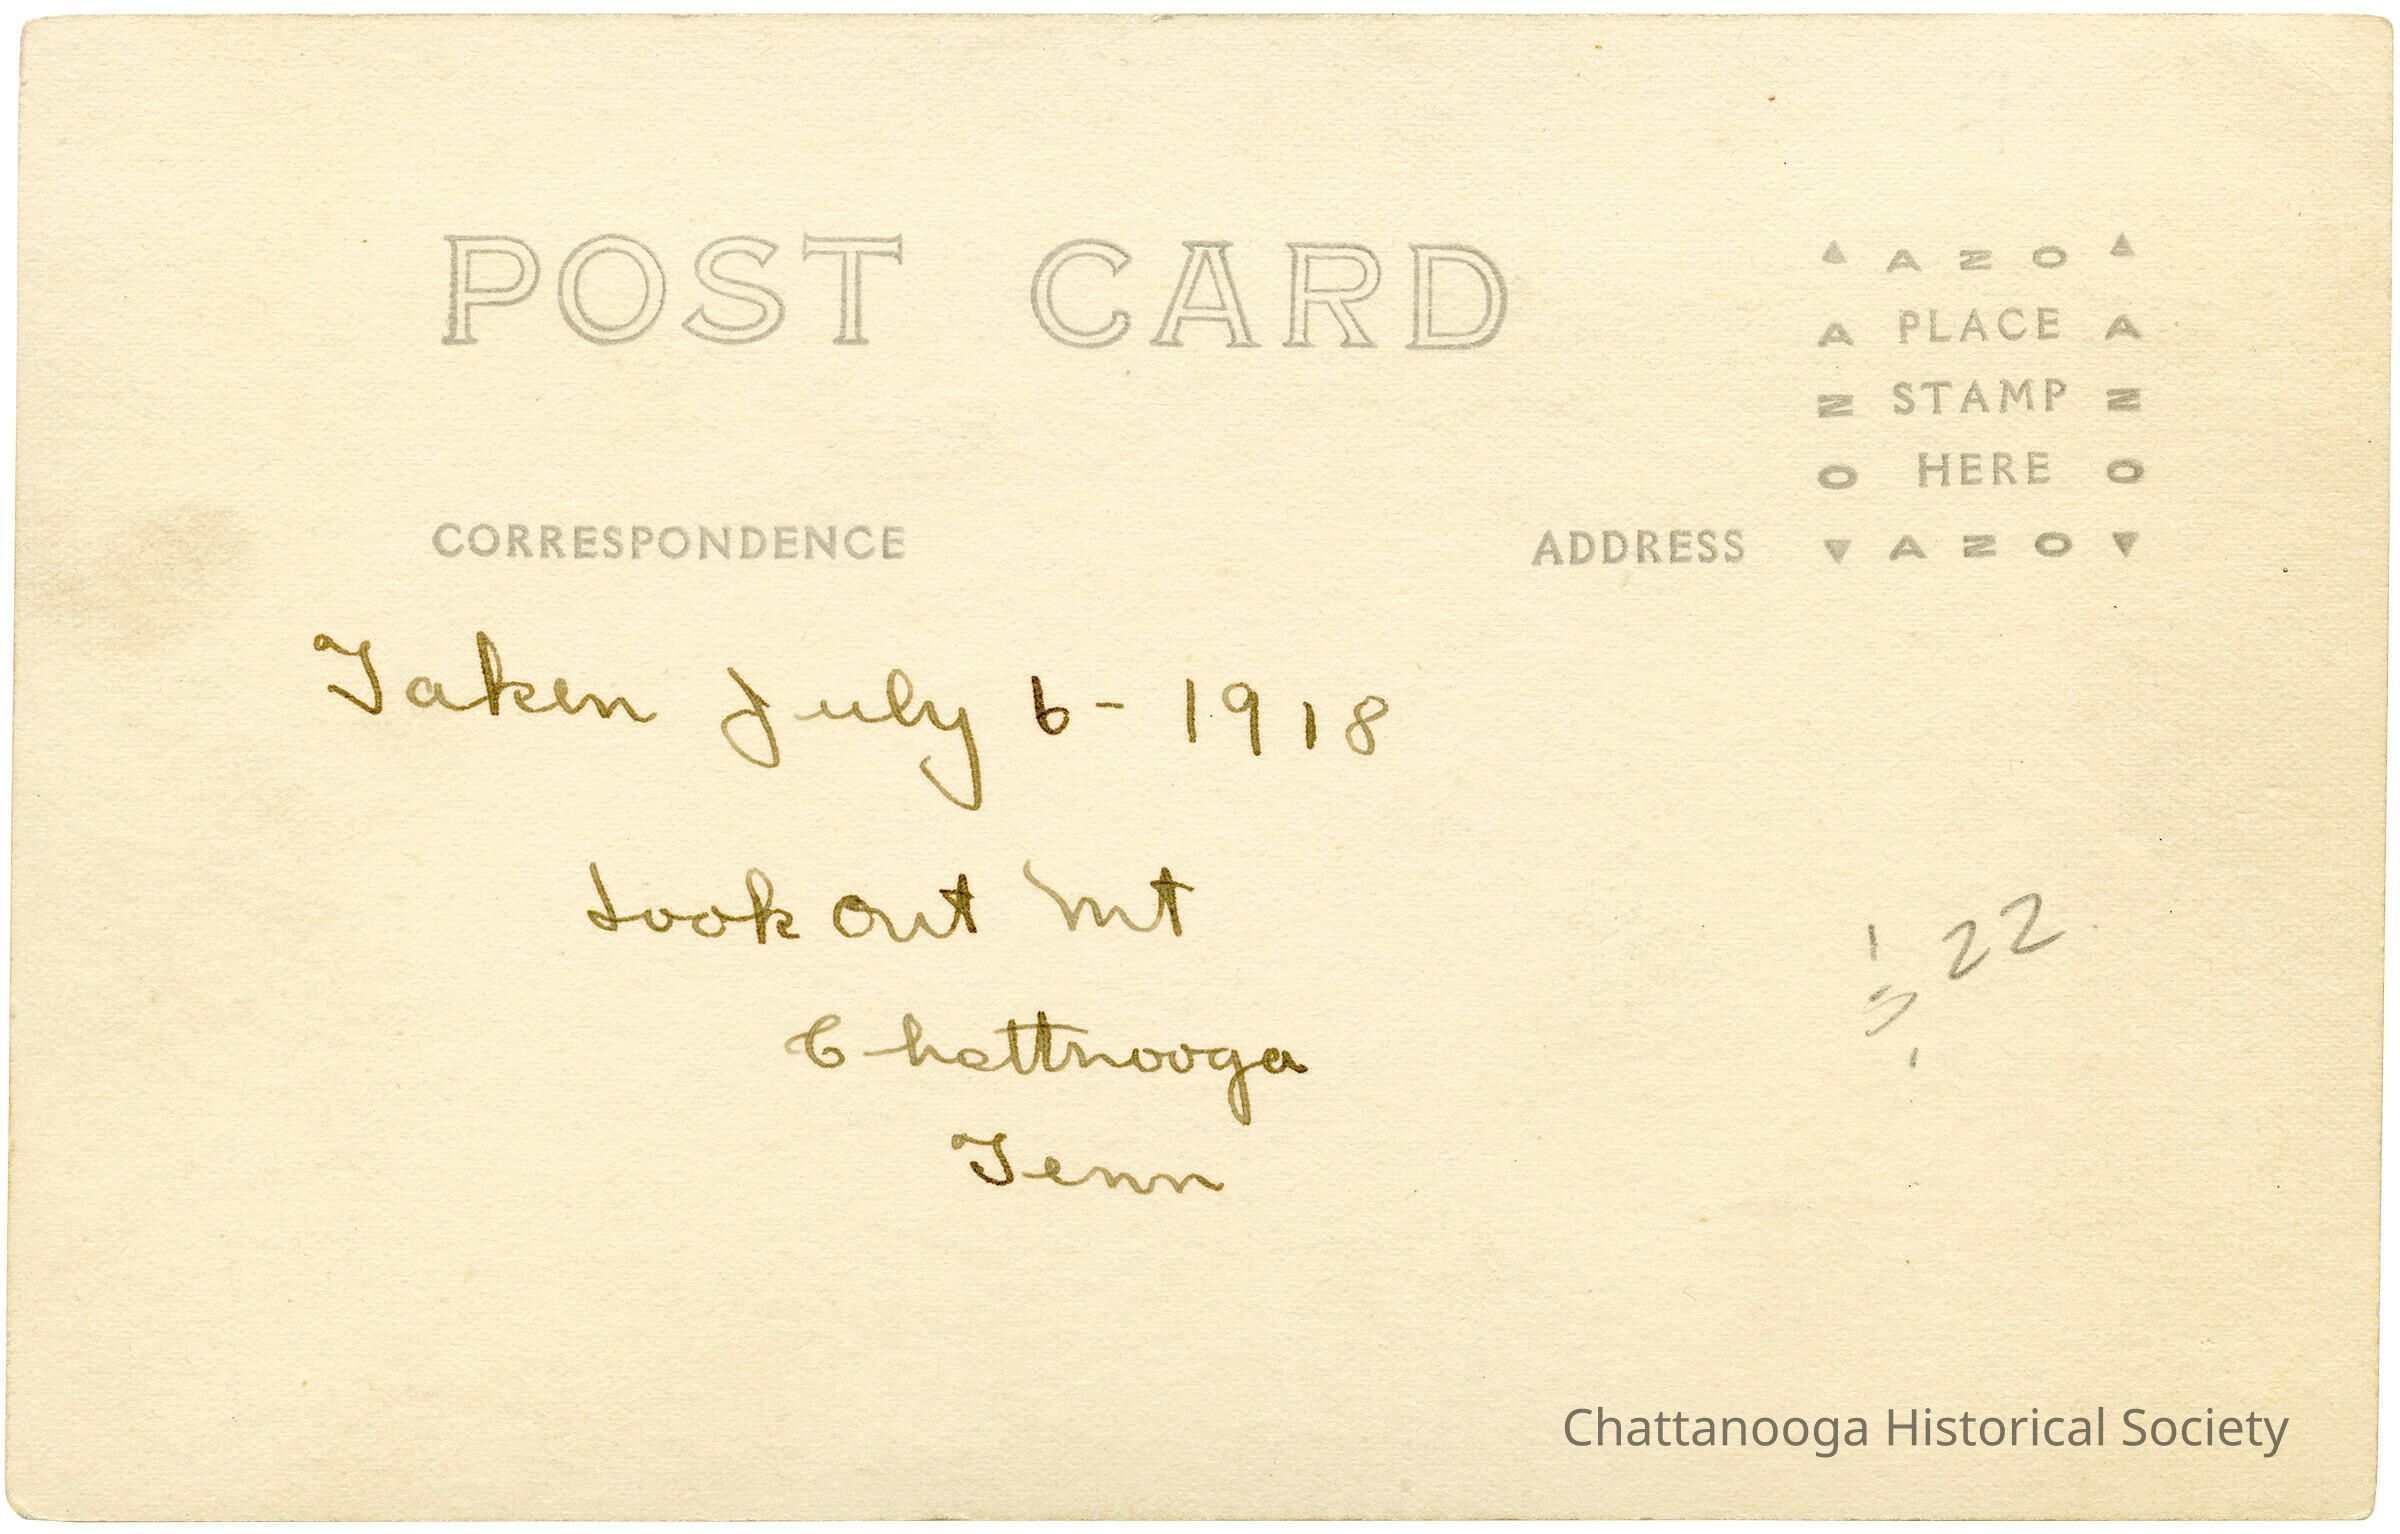 POST CARD
▲ A N O ▲
A PLACE A
N STAMP N
O HERE O
▼ A N O ▼
CORRESPONDENCE
ADDRESS
Taken July 6 - 1918
Look Out Mt
Chattnooga
Tenn
22
Chattanooga Historical Society